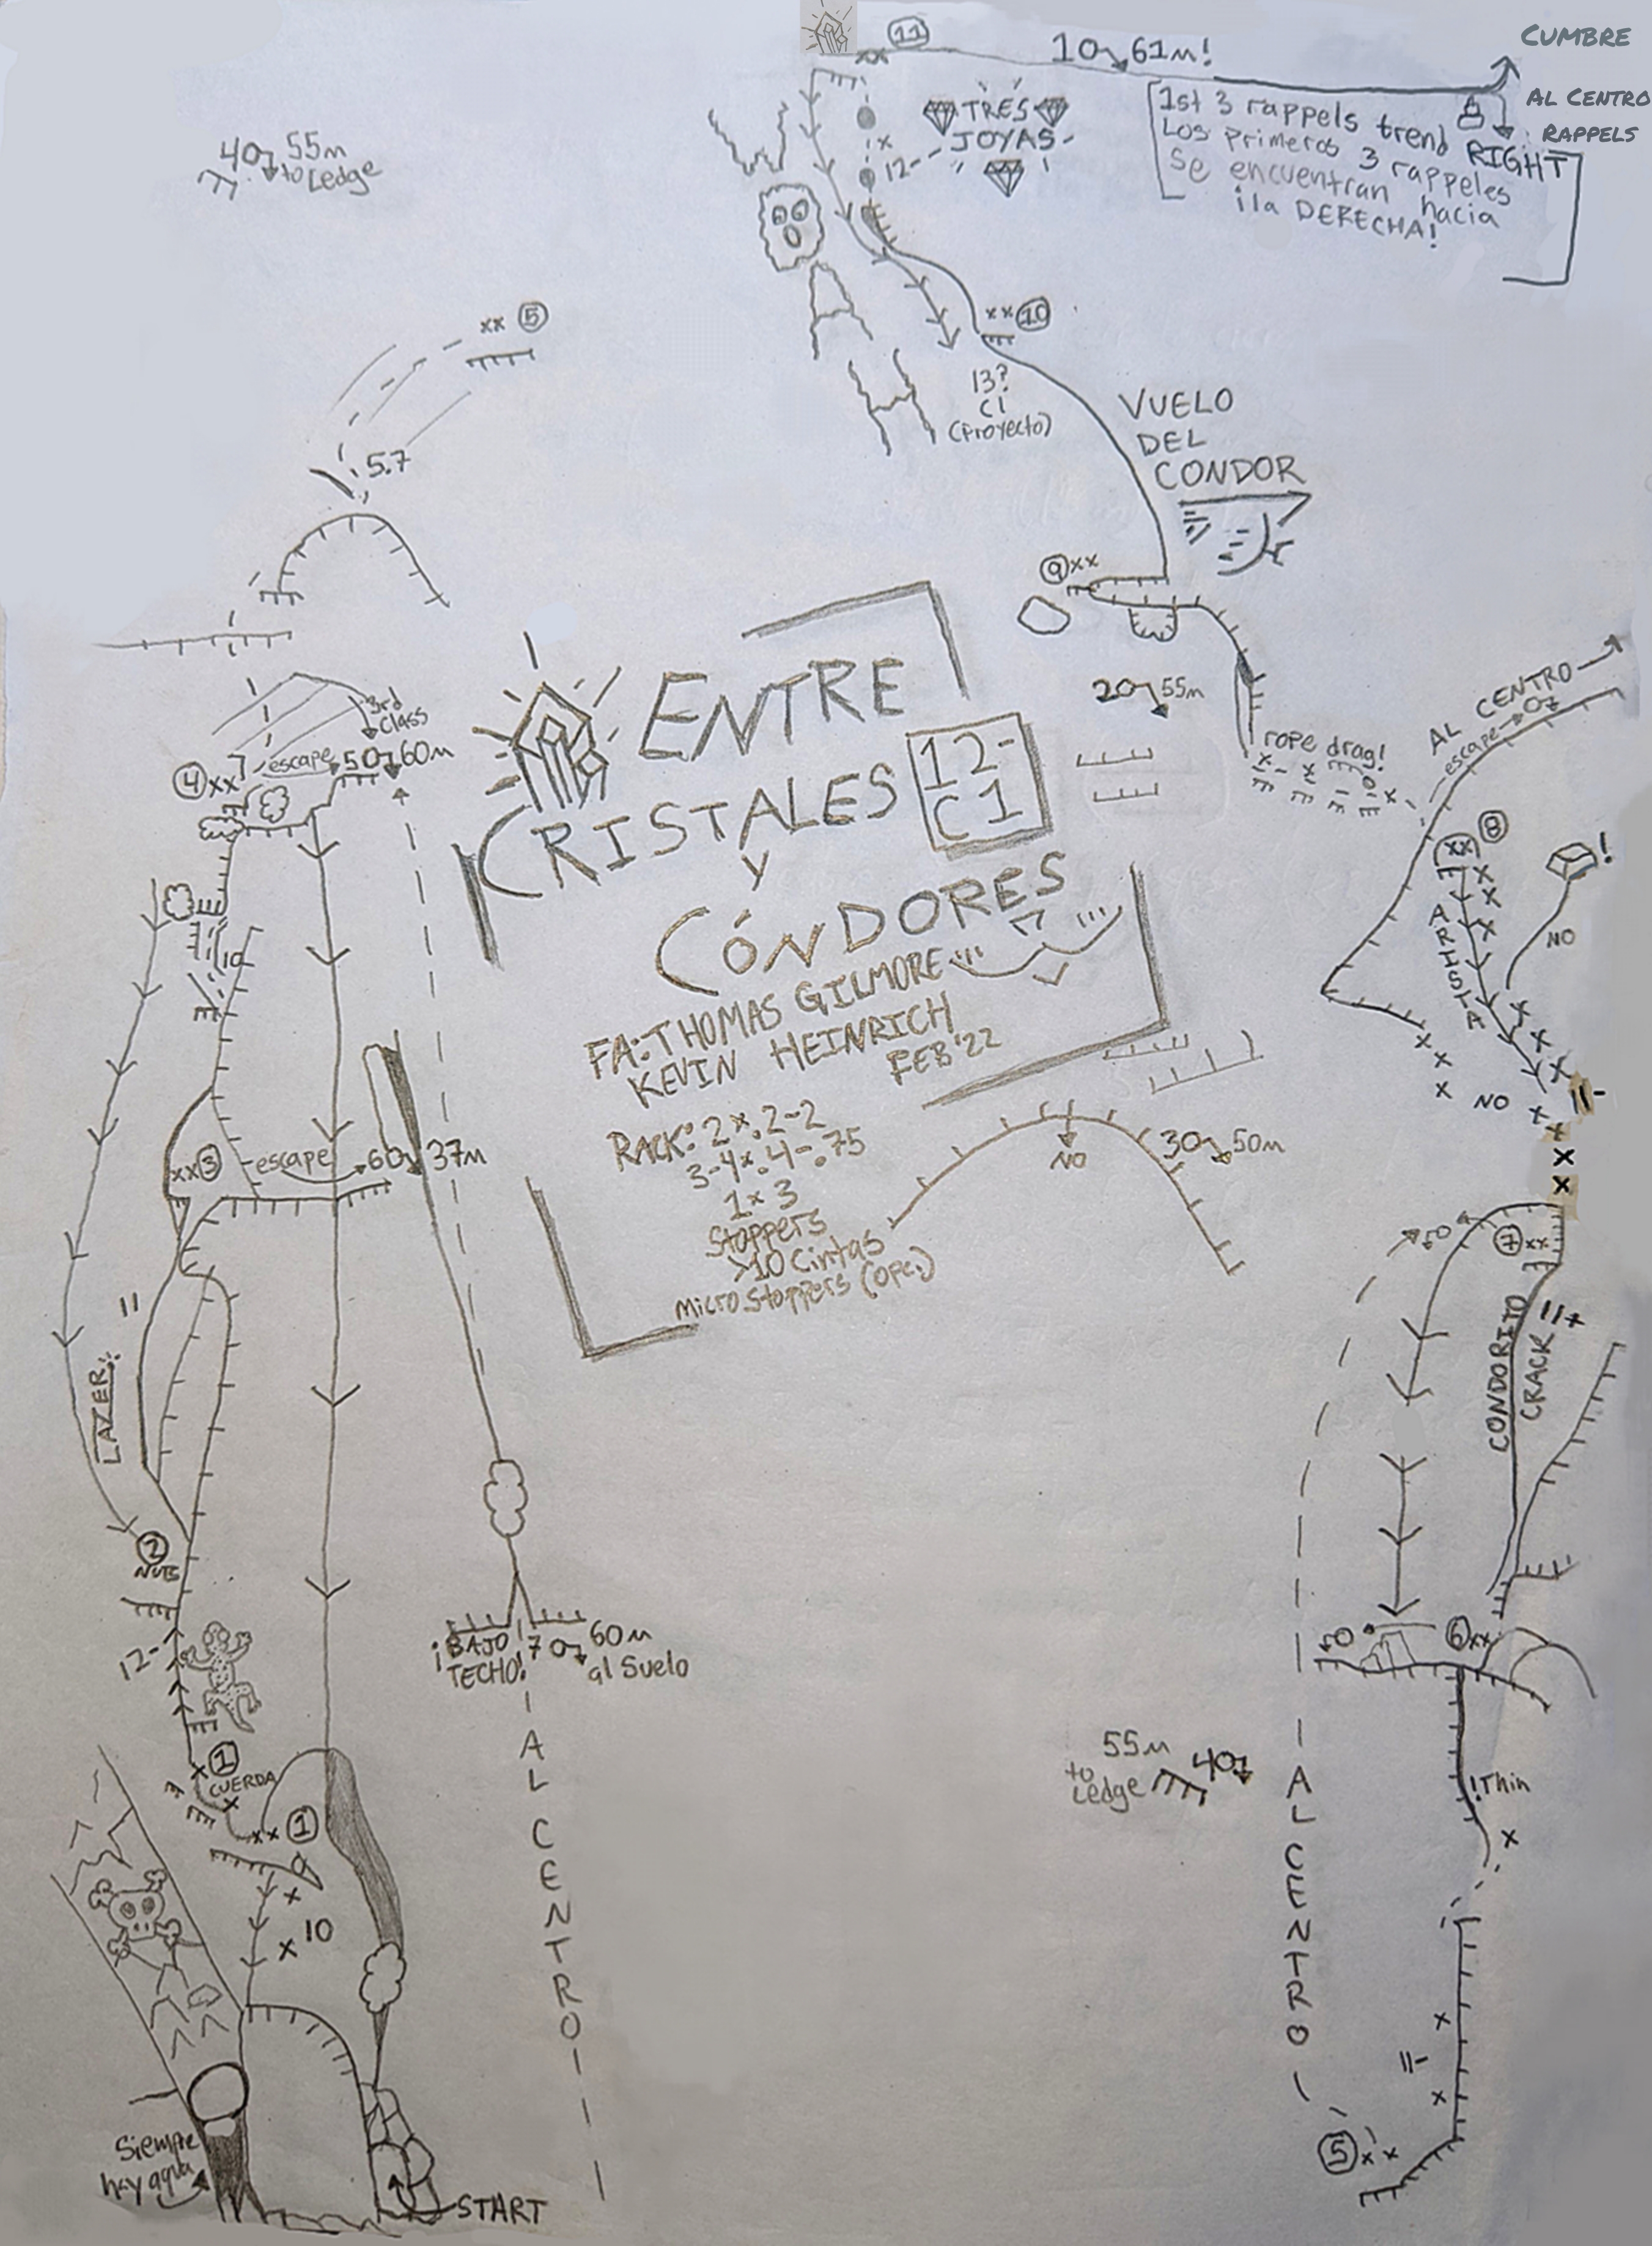 CUMBRE
AL CENTRO
RAPPELS
11
xx
1 61m!
1st 3 rappels trend RIGHT
Los primeros 3 rappeles
se encuentran hacia
¡la DERECHA!
TRES
JOYAS
x
12-
4 55m
to Ledge
xx 5
5.7
xx 10
13?
C1
(Proyecto)
VUELO
DEL
CONDOR
9 xx
2 55m
rope drag!
AL CENTRO
escape
8
xx
ARISTA
!
NO
NO
11-
3rd
Class
escape 5 60m
4 xx
10
ENTRE
CRISTALES
Y
CÓNDORES
12-
C1
FA: THOMAS GILMORE
KEVIN HEINRICH
FEB '22
RACK: 2x .2-2
3-4x .4-.75
1x 3
Stoppers
>10 Cintas
Micro Stoppers (opc.)
NO
3 50m
xx 3
escape 6 37m
11
LAZER
2
NUTS
12-
1
CUERDA
xx 1
10
¡BAJO
TECHO! 7 60m
al Suelo
AL CENTRO
Siempre
hay agua
START
7 xx
11+
CONDORITO
CRACK
6 xx
!Thin
x
55m
to
Ledge 4
AL CENTRO
11-
5 xx